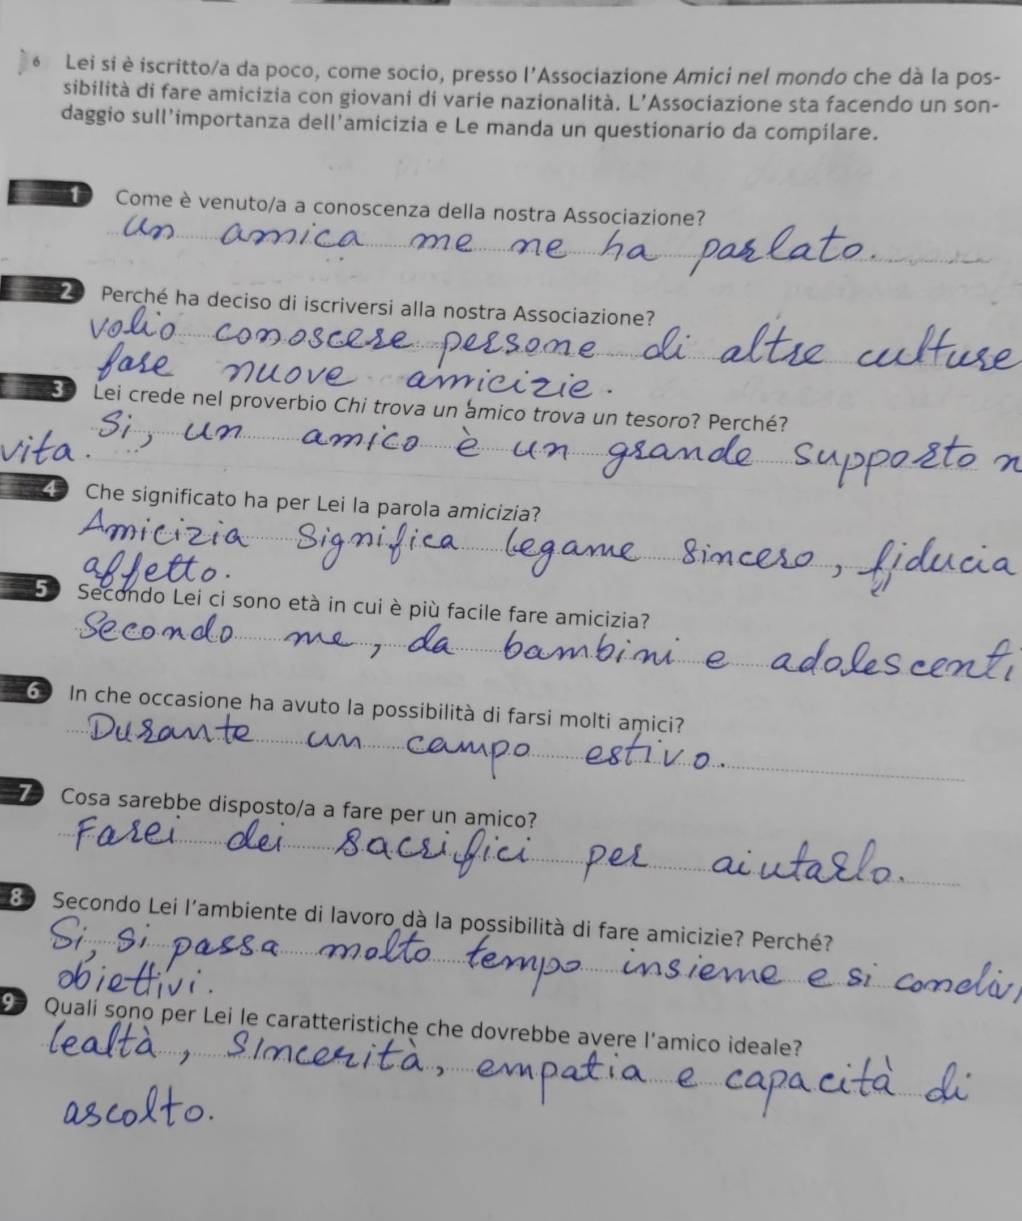 6 Lei si è iscritto/a da poco, come socio, presso l'Associazione Amici nel mondo che dà la pos-
sibilità di fare amicizia con giovani di varie nazionalità. L'Associazione sta facendo un son-
daggio sull'importanza dell'amicizia e Le manda un questionario da compilare.
1 Come è venuto/a a conoscenza della nostra Associazione?
Un amica me ne ha parlato.
2 Perché ha deciso di iscriversi alla nostra Associazione?
volio conoscere persone di altre culture
fare nuove amicizie.
3 Lei crede nel proverbio Chi trova un amico trova un tesoro? Perché?
Si, un amico è un grande supporto n
vita.
4 Che significato ha per Lei la parola amicizia?
Amicizia significa legame sincero, fiducia
affetto.
5 Secondo Lei ci sono età in cui è più facile fare amicizia?
Secondo me, da bambini e adolescenti
6 In che occasione ha avuto la possibilità di farsi molti amici?
Durante un campo estivo.
7 Cosa sarebbe disposto/a a fare per un amico?
Farei dei sacrifici per aiutarlo.
8 Secondo Lei l'ambiente di lavoro dà la possibilità di fare amicizie? Perché?
Si, si passa molto tempo insieme e si condiv
obiettivi.
9 Quali sono per Lei le caratteristiche che dovrebbe avere l'amico ideale?
lealtà, sincerità, empatia e capacità di
ascolto.